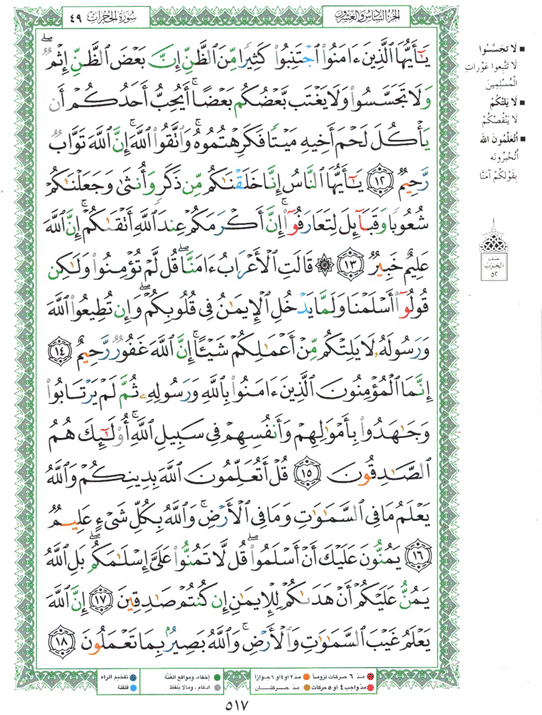 الجزء السادس والعشرون
سورة الحجرات ٤٩
يَـٰٓأَيُّهَا ٱلَّذِينَ ءَامَنُوا۟ ٱجْتَنِبُوا۟ كَثِيرًا مِّنَ ٱلظَّنِّ إِنَّ بَعْضَ ٱلظَّنِّ إِثْمٌ ۖ
وَلَا تَجَسَّسُوا۟ وَلَا يَغْتَب بَّعْضُكُم بَعْضًا ۚ أَيُحِبُّ أَحَدُكُمْ أَن
يَأْكُلَ لَحْمَ أَخِيهِ مَيْتًا فَكَرِهْتُمُوهُ ۚ وَٱتَّقُوا۟ ٱللَّهَ ۚ إِنَّ ٱللَّهَ تَوَّابٌ
رَّحِيمٌ ١٢ يَـٰٓأَيُّهَا ٱلنَّاسُ إِنَّا خَلَقْنَـٰكُم مِّن ذَكَرٍ وَأُنثَىٰ وَجَعَلْنَـٰكُمْ
شُعُوبًا وَقَبَآئِلَ لِتَعَارَفُوٓا۟ ۚ إِنَّ أَكْرَمَكُمْ عِندَ ٱللَّهِ أَتْقَىٰكُمْ ۚ إِنَّ ٱللَّهَ
عَلِيمٌ خَبِيرٌ ١٣ ۞ قَالَتِ ٱلْأَعْرَابُ ءَامَنَّا ۖ قُل لَّمْ تُؤْمِنُوا۟ وَلَـٰكِن
قُولُوٓا۟ أَسْلَمْنَا وَلَمَّا يَدْخُلِ ٱلْإِيمَـٰنُ فِى قُلُوبِكُمْ ۖ وَإِن تُطِيعُوا۟ ٱللَّهَ
وَرَسُولَهُۥ لَا يَلِتْكُم مِّنْ أَعْمَـٰلِكُمْ شَيْـًٔا ۚ إِنَّ ٱللَّهَ غَفُورٌ رَّحِيمٌ ١٤
إِنَّمَا ٱلْمُؤْمِنُونَ ٱلَّذِينَ ءَامَنُوا۟ بِٱللَّهِ وَرَسُولِهِۦ ثُمَّ لَمْ يَرْتَابُوا۟
وَجَـٰهَدُوا۟ بِأَمْوَٰلِهِمْ وَأَنفُسِهِمْ فِى سَبِيلِ ٱللَّهِ ۚ أُو۟لَـٰٓئِكَ هُمُ
ٱلصَّـٰدِقُونَ ١٥ قُلْ أَتُعَلِّمُونَ ٱللَّهَ بِدِينِكُمْ وَٱللَّهُ
يَعْلَمُ مَا فِى ٱلسَّمَـٰوَٰتِ وَمَا فِى ٱلْأَرْضِ ۚ وَٱللَّهُ بِكُلِّ شَىْءٍ عَلِيمٌ
١٦ يَمُنُّونَ عَلَيْكَ أَنْ أَسْلَمُوا۟ ۖ قُل لَّا تَمُنُّوا۟ عَلَىَّ إِسْلَـٰمَكُم ۖ بَلِ ٱللَّهُ
يَمُنُّ عَلَيْكُمْ أَنْ هَدَىٰكُمْ لِلْإِيمَـٰنِ إِن كُنتُمْ صَـٰدِقِينَ ١٧ إِنَّ ٱللَّهَ
يَعْلَمُ غَيْبَ ٱلسَّمَـٰوَٰتِ وَٱلْأَرْضِ ۚ وَٱللَّهُ بَصِيرٌۢ بِمَا تَعْمَلُونَ ١٨
لا تجسسوا
لا تتبعوا عورات
المسلمين
لا يلتكم
لا ينقصكم
أتعلمون الله
أتخبرونه
بقولكم آمنا
الحزب
٥٢
مد ٦ حركات لزوماً
مد ٢ أو ٤ أو ٦ جوازاً
إخفاء، ومواقع الغنة
تفخيم الراء
مد واجب ٤ أو ٥ حركات
مد حركتان
إدغام، وما لا يلفظ
قلقلة
٥١٧